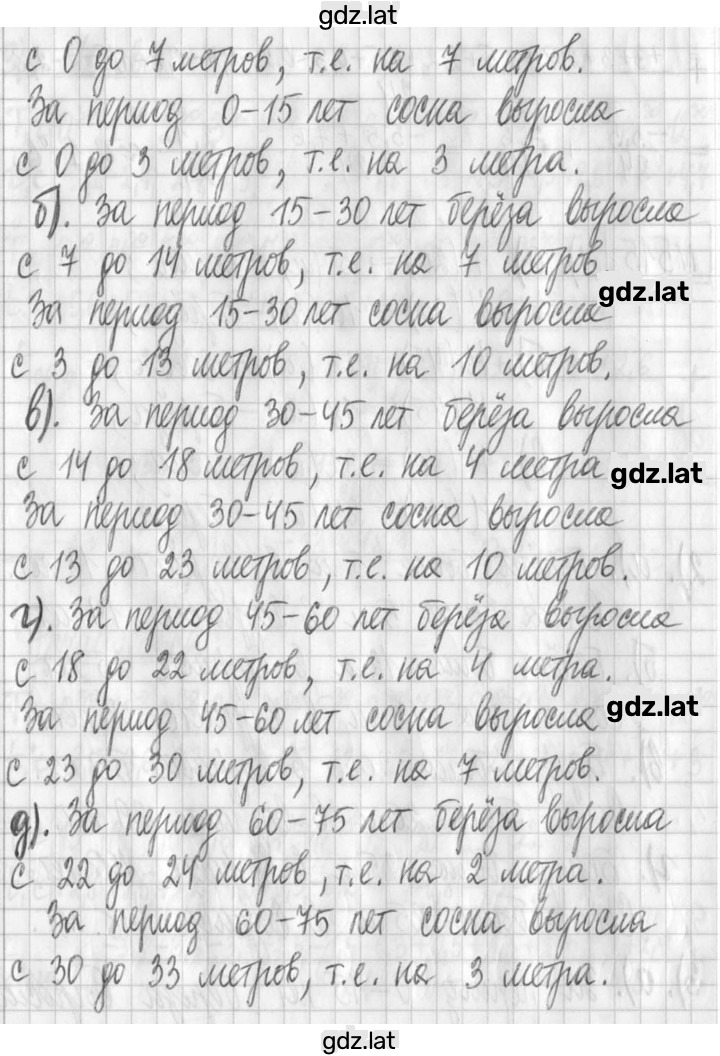 gdz.lat
с 0 до 7 метров, т.е. на 7 метров.
За период 0-15 лет сосна выросла
с 0 до 3 метров, т.е. на 3 метра.
б). За период 15-30 лет берёза выросла
с 7 до 14 метров, т.е. на 7 метров
gdz.lat
За период 15-30 лет сосна выросла
с 3 до 13 метров, т.е. на 10 метров.
в). За период 30-45 лет берёза выросла
с 14 до 18 метров, т.е. на 4 метра
gdz.lat
За период 30-45 лет сосна выросла
с 13 до 23 метров, т.е. на 10 метров.
г). За период 45-60 лет берёза выросла
с 18 до 22 метров, т.е. на 4 метра.
За период 45-60 лет сосна выросла
gdz.lat
с 23 до 30 метров, т.е. на 7 метров.
д). За период 60-75 лет берёза выросла
с 22 до 24 метров, т.е. на 2 метра.
За период 60-75 лет сосна выросла
с 30 до 33 метров, т.е. на 3 метра.
gdz.lat